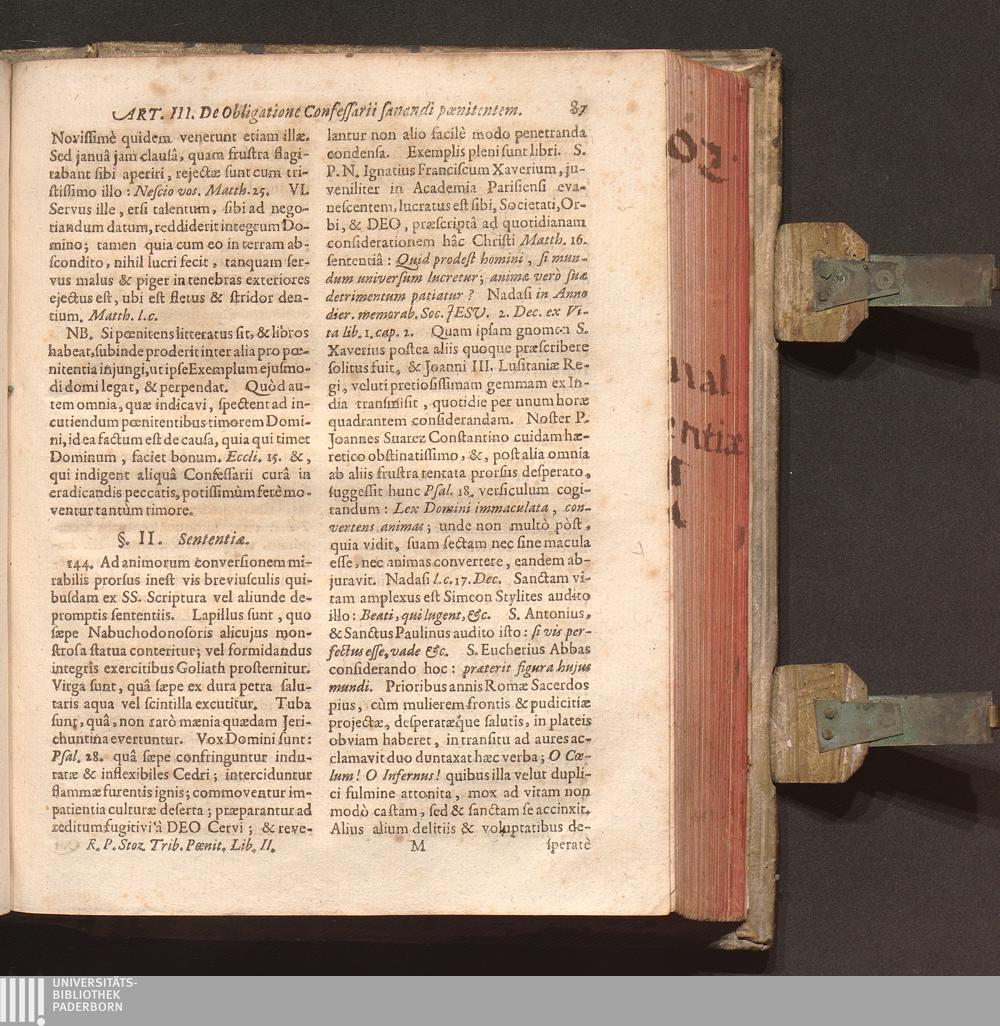 ART. III. De Obligatione Confeſſarii ſanandi pœnitentem. 87
Noviſſimè quidem venerunt etiam illæ.
Sed januâ jam clauſâ, quam fruſtra flagi-
tabant ſibi aperiri, rejectæ ſunt cum tri-
ſtiſſimo illo: Neſcio vos. Matth. 25. VI.
Servus ille, etſi talentum, ſibi ad nego-
tiandum datum, reddiderit integrum Do-
mino; tamen quia cum eo in terram ab-
ſcondito, nihil lucri fecit, tanquam ſer-
vus malus & piger in tenebras exteriores
ejectus eſt, ubi eſt fletus & ſtridor den-
tium. Matth. l.c.
NB. Si pœnitens litteratus ſit, & libros
habeat, ſubinde proderit inter alia pro pœ-
nitentia injungi, ut ipſe Exemplum ejuſmo-
di domi legat, & perpendat. Quòd au-
tem omnia, quæ indicavi, ſpectent ad in-
cutiendum pœnitentibus timorem Domi-
ni, id ea factum eſt de cauſa, quia qui timet
Dominum, faciet bonum. Eccli. 15. &,
qui indigent aliquâ Confeſſarii curâ in
eradicandis peccatis, potiſſimùm ferè mo-
ventur tantùm timore.
§. II. Sententiæ.
144. Ad animorum converſionem mi-
rabilis prorſus ineſt vis breviuſculis qui-
buſdam ex SS. Scriptura vel aliunde de-
promptis ſententiis. Lapillus ſunt, quo
ſæpe Nabuchodonoſoris alicujus mon-
ſtroſa ſtatua conteritur; vel formidandus
integrîs exercitibus Goliath proſternitur.
Virga ſunt, quâ ſæpe ex dura petra ſalu-
taris aqua vel ſcintilla excutitur. Tuba
ſunt, quâ, non rarò mænia quædam Jeri-
chuntina evertuntur. Vox Domini ſunt:
Pſal. 28. quâ ſæpe confringuntur indu-
ratæ & inflexibiles Cedri; interciduntur
flammæ furentis ignis; commoventur im-
patientia culturæ deſerta; præparantur ad
reditum fugitivi à DEO Cervi; & reve-
R. P. Stoz Trib. Pœnit. Lib. II.
lantur non alio facilè modo penetranda
condenſa. Exemplis pleni ſunt libri. S.
P. N. Ignatius Franciſcum Xaverium, ju-
veniliter in Academia Pariſienſi eva-
neſcentem, lucratus eſt ſibi, Societati, Or-
bi, & DEO, præſcriptâ ad quotidianam
conſiderationem hâc Chriſti Matth. 16.
ſententiâ: Quid prodeſt homini, ſi mun-
dum univerſum lucretur; animæ verò ſuæ
detrimentum patiatur? Nadaſi in Anno
dier. memorab. Soc. JESU. 2. Dec. ex Vi-
ta lib. 1. cap. 2. Quam ipſam gnomen S.
Xaverius poſtea aliis quoque præſcribere
ſolitus fuit, & Joanni III. Luſitaniæ Re-
gi, veluti pretioſiſſimam gemmam ex In-
dia tranſmiſit, quotidie per unum horæ
quadrantem conſiderandam. Noſter P.
Joannes Suarez Conſtantino cuidam hæ-
retico obſtinatiſſimo, &, poſt alia omnia
ab aliis fruſtra tentata prorſus deſperato,
ſuggeſſit hunc Pſal. 18. verſiculum cogi-
tandum: Lex Domini immaculata, con-
vertens animas; unde non multò pòſt,
quia vidit, ſuam ſectam nec ſine macula
eſſe, nec animas convertere, eandem ab-
juravit. Nadaſi l.c. 17. Dec. Sanctam vi-
tam amplexus eſt Simeon Stylites audito
illo: Beati, qui lugent, &c. S. Antonius,
& Sanctus Paulinus audito iſto: ſi vis per-
fectus eſſe, vade &c. S. Eucherius Abbas
conſiderando hoc: præterit figura hujus
mundi. Prioribus annis Romæ Sacerdos
pius, cùm mulierem frontis & pudicitiæ
projectæ, deſperatæque ſalutis, in plateis
obviam haberet, in tranſitu ad aures ac-
clamavit duo duntaxat hæc verba; O Cœ-
lum! O Infernus! quibus illa velut dupli-
ci fulmine attonita, mox ad vitam non
modò caſtam, ſed & ſanctam ſe accinxit.
Alius alium delitiis & voluptatibus de-
M ſperatè
oz.
nal
entiæ
UNIVERSITÄTS-
BIBLIOTHEK
PADERBORN